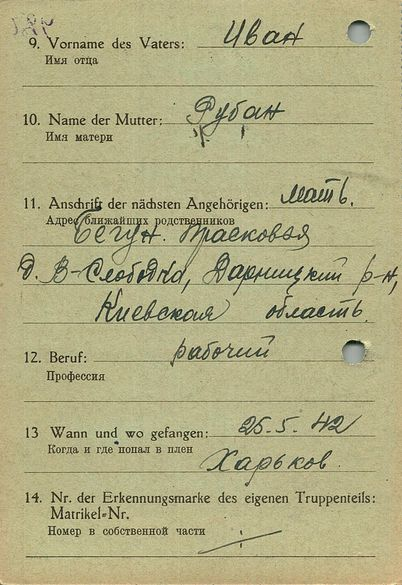 9. Vorname des Vaters: Иван
Имя отца
10. Name der Mutter: Рубан
Имя матери
11. Anschrift der nächsten Angehörigen: мать.
Адрес ближайших родственников
Бегун. Прасковья
Д. В-Слободка, Дарницкий р-н,
Киевская область.
12. Beruf: рабочий
Профессия
13 Wann und wo gefangen: 25.5.42
Когда и где попал в плен
Харьков.
14. Nr. der Erkennungsmarke des eigenen Truppenteils:
Matrikel-Nr.
Номер в собственной части